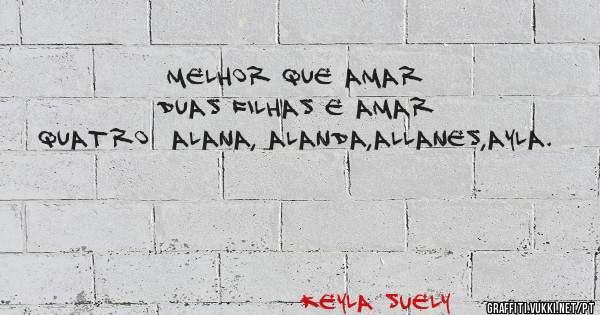 MELHOR QUE AMAR
DUAS FILHAS E AMAR
QUATRO ALANA, ALANDA,ALLANES,AYLA.
KEYLA SUELY
GRAFFITI.VUKKI.NET/PT